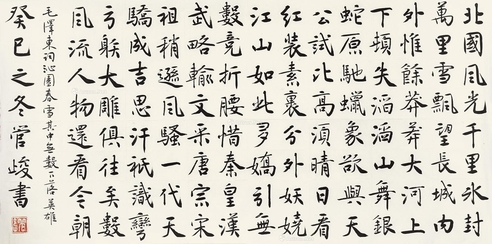 北國風光千里冰封
萬里雪飄望長城内
外惟餘莽莽大河上
下頓失滔滔山舞銀
蛇原馳蠟象欲與天
公試比高須晴日看
紅裝素裹分外妖嬈
江山如此多嬌引無
數競折腰惜秦皇漢
武略輸文采唐宗宋
祖稍遜風騷一代天
驕成吉思汗祇識彎
弓射大雕俱往矣數
風流人物還看今朝
毛澤東詞沁園春雪其中無數下落英雄
癸巳之冬管峻書